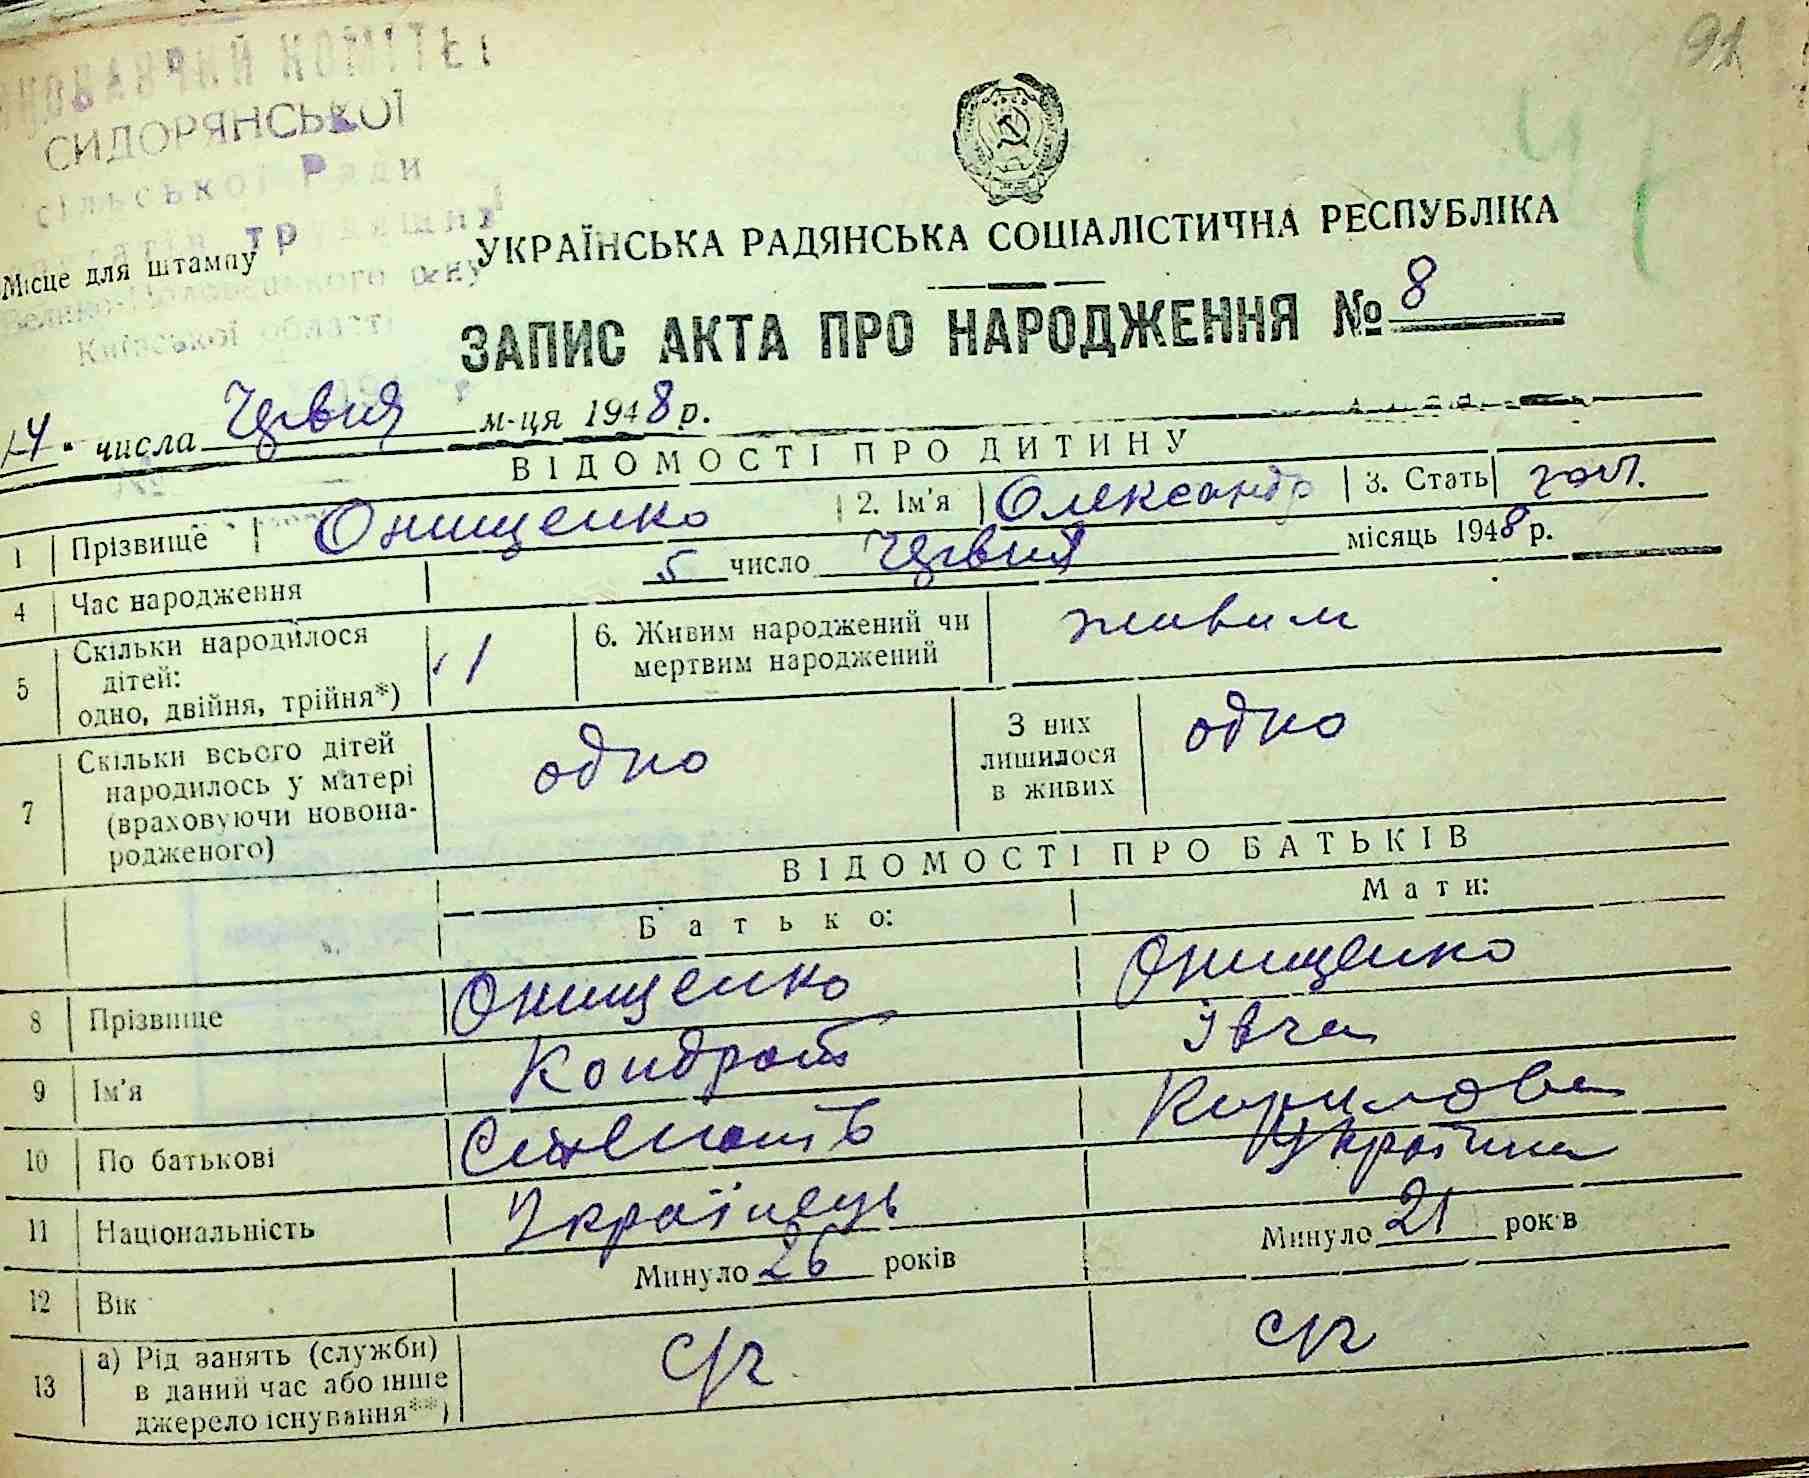 91
ВИКОНАВЧИЙ КОМІТЕТ
СИДОРЯНСЬКОЇ
сільської Ради
депутатів трудящих
Велико-Половецького р-ну
Київської області
Місце для штампу
УКРАЇНСЬКА РАДЯНСЬКА СОЦІАЛІСТИЧНА РЕСПУБЛІКА
ЗАПИС АКТА ПРО НАРОДЖЕННЯ № 8
14 числа Червня м-ця 1948 р.
ВІДОМОСТІ ПРО ДИТИНУ
1 Прізвище Онищенко 2. Ім'я Олександр 3. Стать чол.
4 Час народження 5 число Червня місяць 1948 р.
5 Скільки народилося дітей: одно, двійня, трійня*) 1 6. Живим народжений чи мертвим народжений живим
7 Скільки всього дітей народилось у матері (враховуючи новонародженого) одно З них лишилося в живих одно
ВІДОМОСТІ ПРО БАТЬКІВ
Батько: Мати:
8 Прізвище Онищенко Онищенко
9 Ім'я Кондрат
10 По батькові Кирилова
11 Національність Українець Українка
12 Вік Минуло 26 років Минуло 21 років
13 а) Рід занять (служби) в даний час або інше джерело існування**)